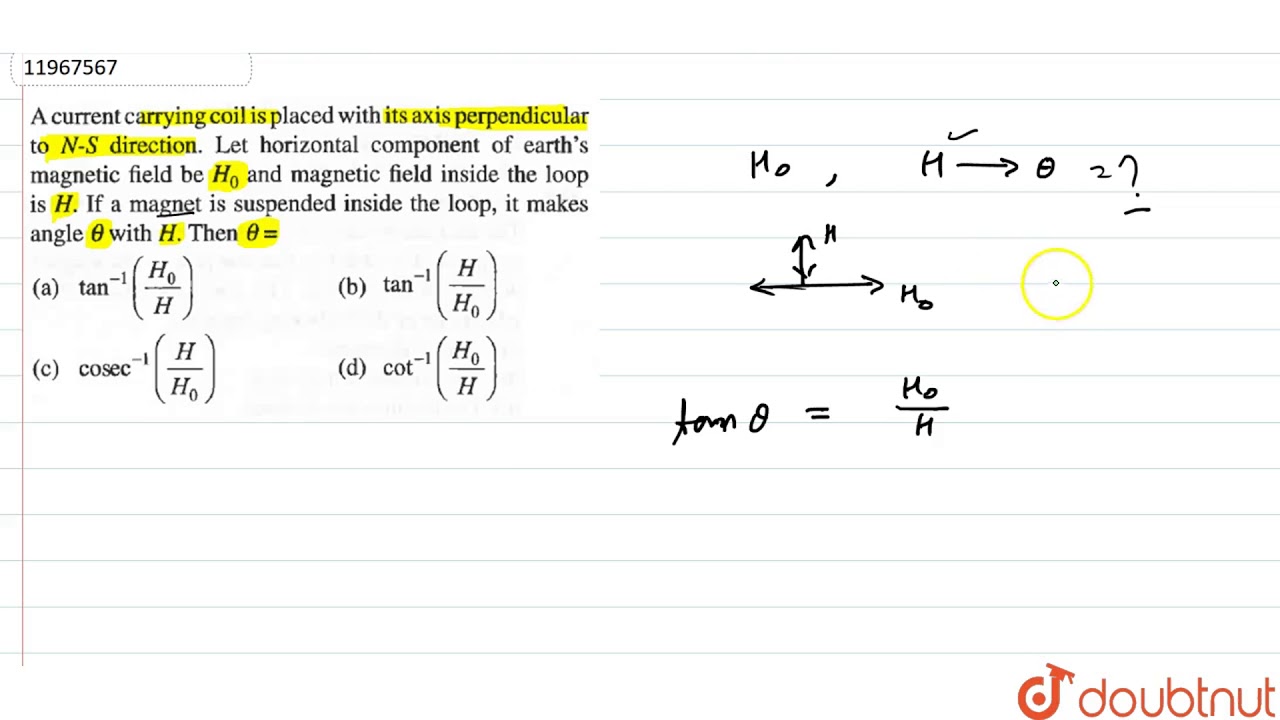 11967567
A current carrying coil is placed with its axis perpendicular
to N-S direction. Let horizontal component of earth's
magnetic field be H₀ and magnetic field inside the loop
is H. If a magnet is suspended inside the loop, it makes
angle θ with H. Then θ =
(a) tan⁻¹(H₀/H) (b) tan⁻¹(H/H₀)
(c) cosec⁻¹(H/H₀) (d) cot⁻¹(H₀/H)
H₀ , H ⟶ θ = ?
H
H₀
tan θ = H₀/H
doubtnut